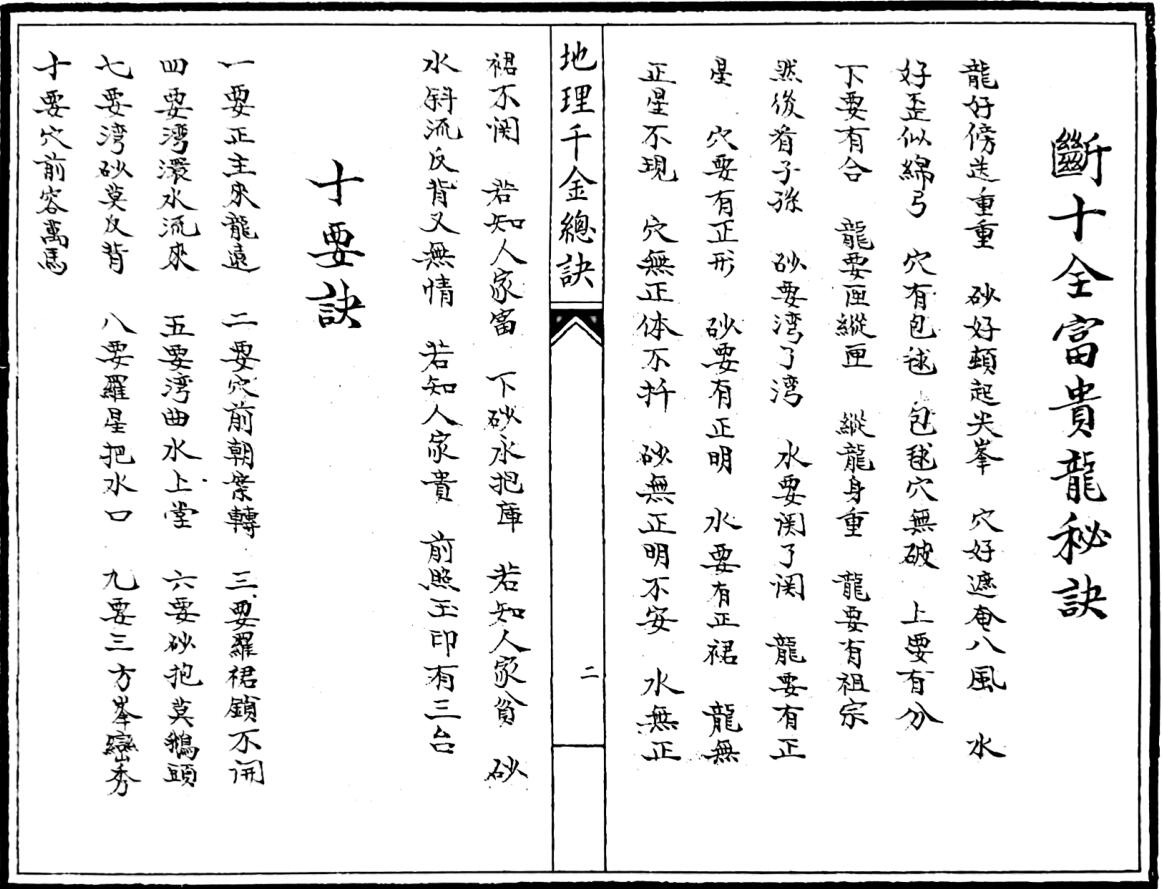 斷十全富貴龍秘訣
龍好傍送重重 砂好頓起尖峯 穴好遮奄八風 水
好歪似綿弓 穴有包毬 包毬穴無破 上要有分
下要有合 龍要匣縱匣 縱龍身重 龍要有祖宗
然後看子孫 砂要湾了湾 水要関了関 龍要有正
星 穴要有正形 砂要有正明 水要有正裙 龍無
正星不現 穴無正体不扦 砂無正明不安 水無正
地理千金總訣
二
裙不関 若知人家富 下砂永抱庫 若知人家貧 砂
水斜流反背又無情 若知人家貴 前照玉印有三台
十要訣
一要正主來龍遠 二要穴前朝案轉 三要羅裙鎖不開
四要湾澴水流來 五要湾曲水上堂 六要砂抱莫鵝頭
七要湾砂莫反背 八要羅星把水口 九要三方峯巒秀
十要穴前容萬馬